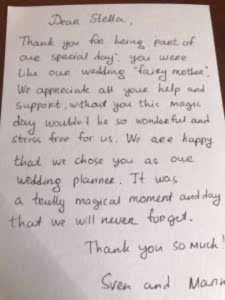 Dear Stella,
Thank you for being part of
our special day", you were
like our wedding "fairy mother".
We appreciate all your help and
support, without you this magic
day wouldn't be so wonderful and
stress free for us. We are happy
that we chose you as our
wedding planner. It was
a trully magical moment and day
that we will never forget.
Thank you so much!
Sven and